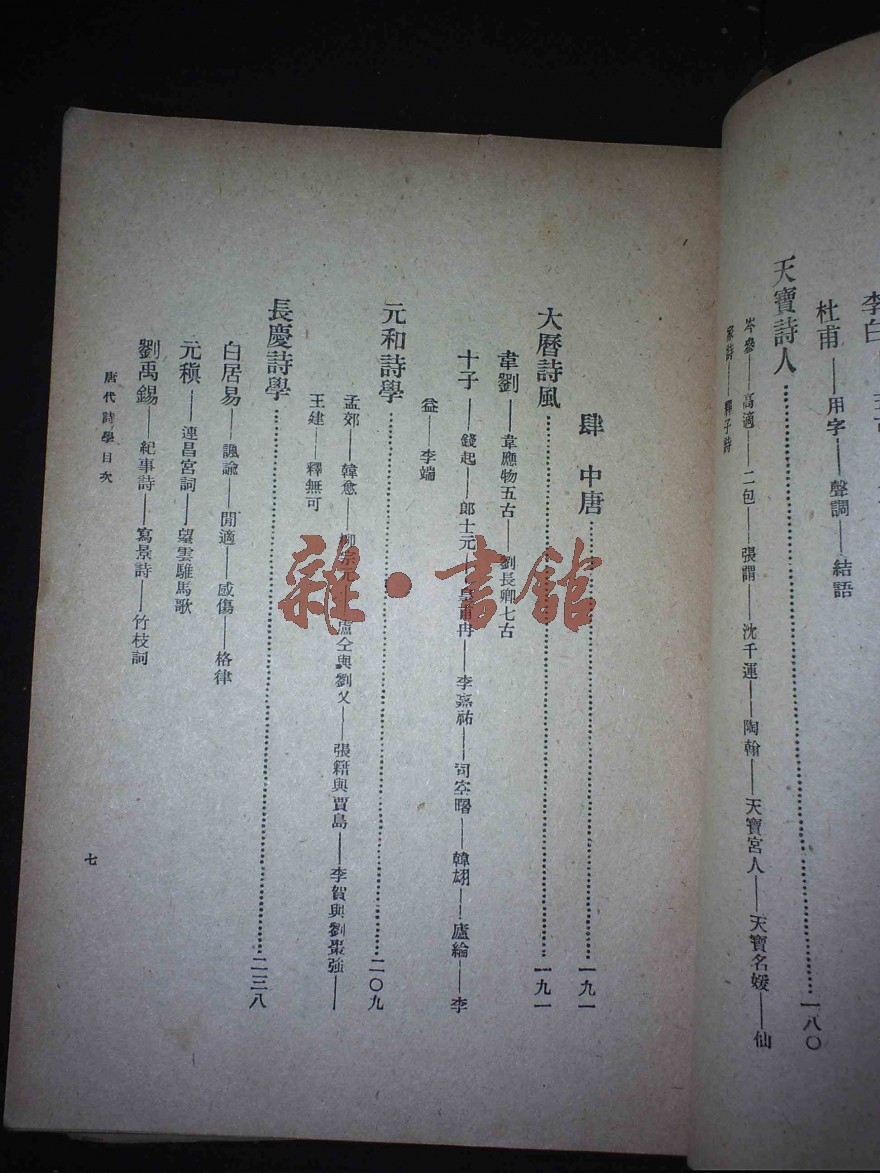 李白
杜甫——用字——聲調——結語
天寶詩人……一八〇
岑參——高適——二包——張謂——沈千運——陶翰——天寶宮人——天寶名媛——仙
家詩——釋子詩
肆 中唐……一九一
大曆詩風……一九一
韋劉——韋應物五古——劉長卿七古
十子——錢起——郎士元——皇甫冉——李嘉祐——司空曙——韓翃——盧綸——李
益——李端
元和詩學……二〇九
孟郊——韓愈——柳宗元——盧仝與劉叉——張籍與賈島——李賀與劉棗強——
王建——釋無可
長慶詩學……二三八
白居易——諷諭——閒適——感傷——格律
元稹——連昌宮詞——望雲騅馬歌
劉禹錫——紀事詩——寫景詩——竹枝詞
唐代詩學目次
七
雜·書館